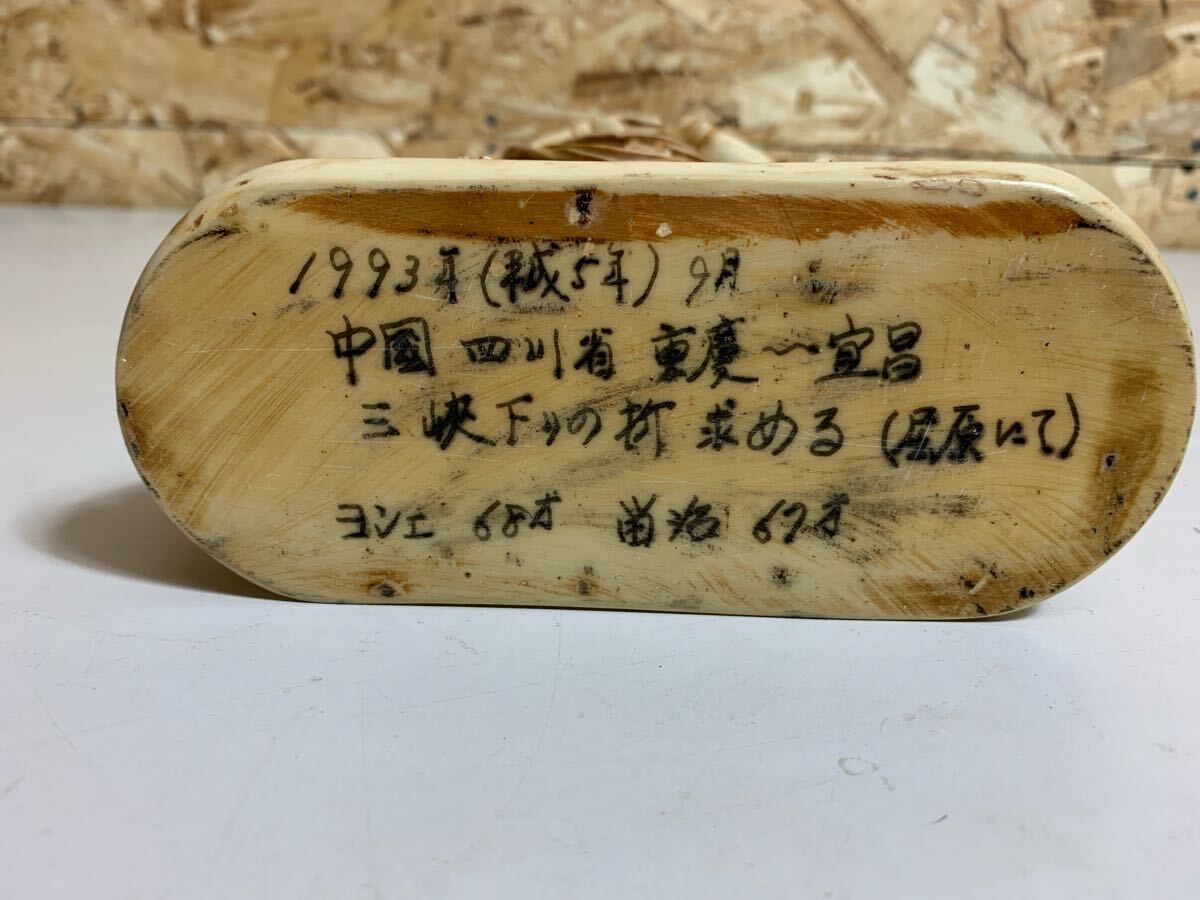 1993年(平成5年) 9月
中國 四川省 重慶〜宜昌
三峡下りの折 求める (屈原にて)
ヨシエ 68才 留治 67才